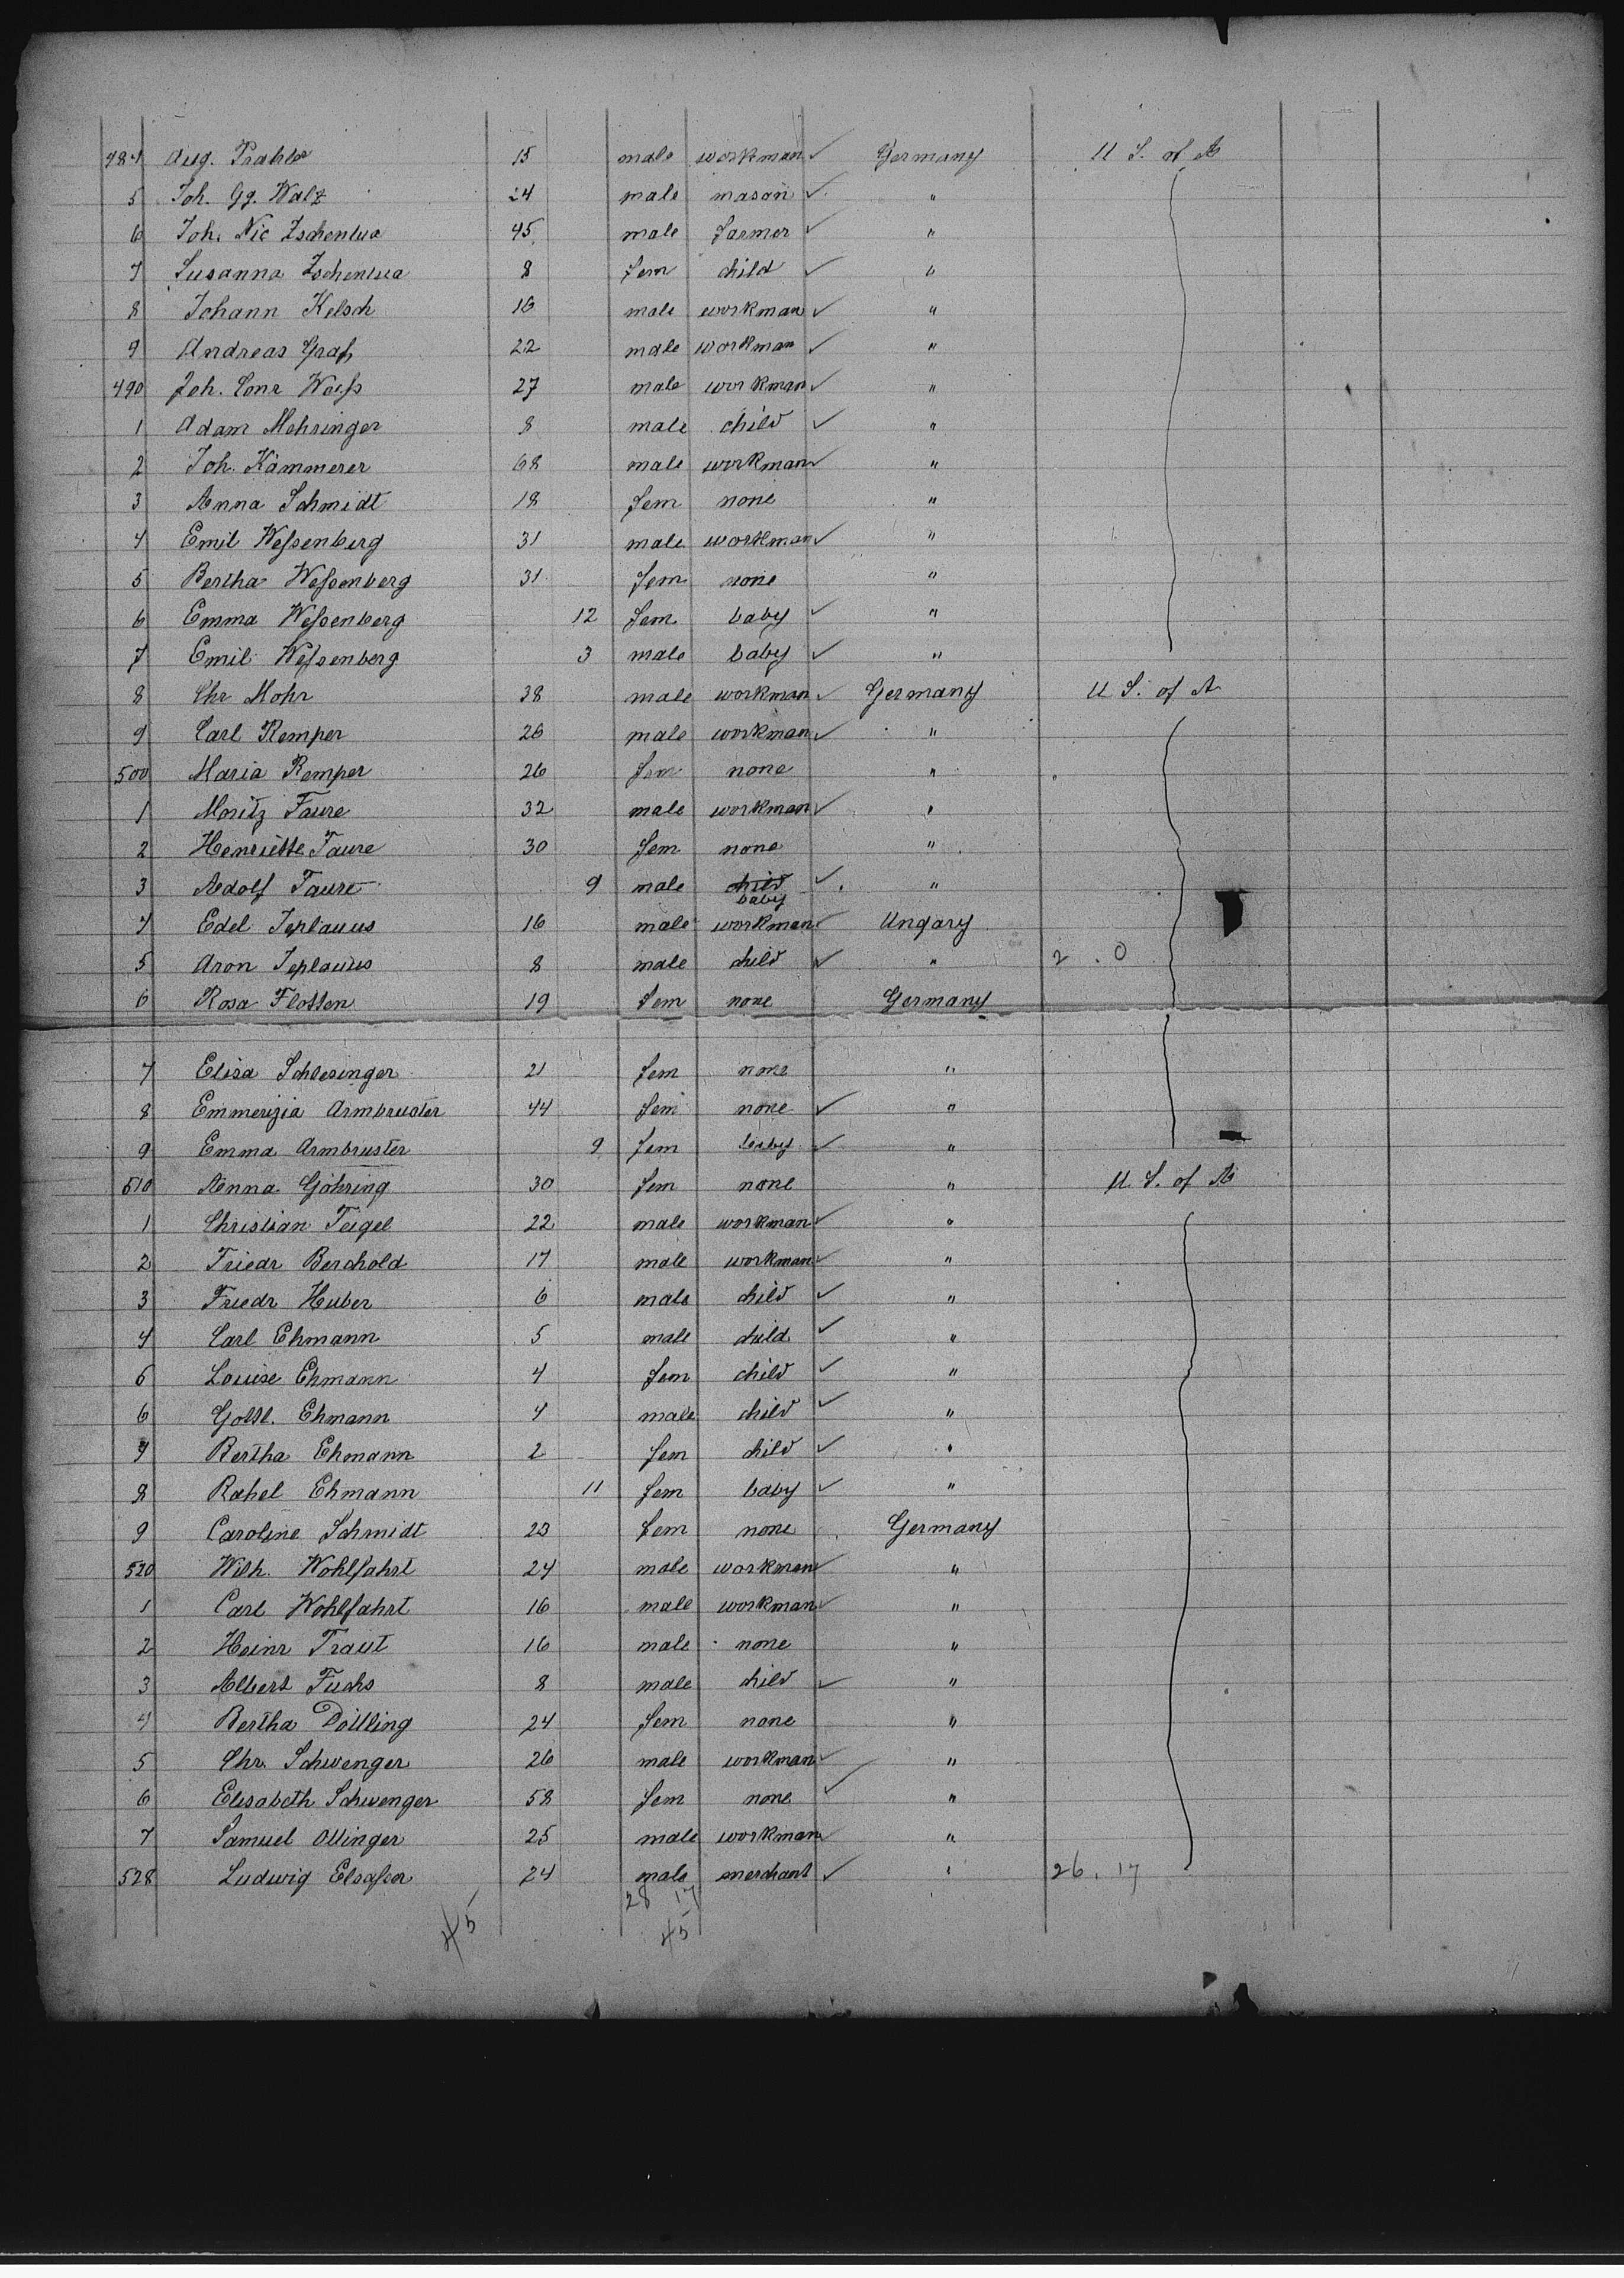 484 Aug. Prahler 15 male workman ✓ Germany U S. of A
5 Joh. Gg. Walz 24 male mason ✓ "
6 Joh. Nic Zschenlua 45 male farmer ✓ "
7 Susanna Zschenlua 8 fem child ✓ "
8 Johann Kelsch 16 male workman ✓ "
9 Andreas Graf 22 male workman ✓ "
490 Joh. Conr Weiss 27 male workman ✓ "
1 Adam Mehringer 8 male child ✓ "
2 Joh. Kämmerer 68 male workman ✓ "
3 Anna Schmidt 18 fem none "
4 Emil Wessenberg 31 male workman ✓ "
5 Bertha Wessenberg 31 fem none "
6 Emma Wessenberg 12 fem baby ✓ "
7 Emil Wessenberg 3 male baby ✓ "
8 Chr Mohr 38 male workman ✓ Germany U S. of A
9 Carl Remper 26 male workman ✓ "
500 Maria Remper 26 fem none "
1 Moritz Faure 32 male workman ✓ "
2 Henriette Faure 30 fem none "
3 Adolf Faure 9 male child baby ✓ "
4 Edel 16 male workman ✓ Ungary
5 Aron 8 male child ✓ " 2 . 0
6 Rosa Flossen 19 fem none Germany
7 Elisa Schlesinger 21 fem none "
8 Emmerizia Armbruster 44 fem none ✓ "
9 Emma Armbruster 9 fem baby ✓ "
510 Anna Göhring 30 fem none " U. S. of A
1 Christian Teigel 22 male workman ✓ "
2 Friedr Berchold 17 male workman ✓ "
3 Friedr Huber 6 male child ✓ "
4 Carl Ehmann 5 male child ✓ "
5 Louise Ehmann 4 fem child ✓ "
6 Gottl. Ehmann 4 male child ✓ "
7 Bertha Ehmann 2 fem child ✓ "
8 Rahel Ehmann 11 fem baby ✓ "
9 Caroline Schmidt 23 fem none Germany
520 Wilh. Wohlfahrt 24 male workman ✓ "
1 Carl Wohlfahrt 16 male workman ✓ "
2 Heinr Traut 16 male none "
3 Albert Fuchs 8 male child ✓ "
4 Bertha Dölling 24 fem none "
5 Chr. Schwenger 26 male workman ✓ "
6 Elisabeth Schwenger 58 fem none ✓ "
7 Samuel Ollinger 25 male workman ✓ "
528 Ludwig Elsasser 24 male merchant ✓ " 26 . 17
28 17
45 45